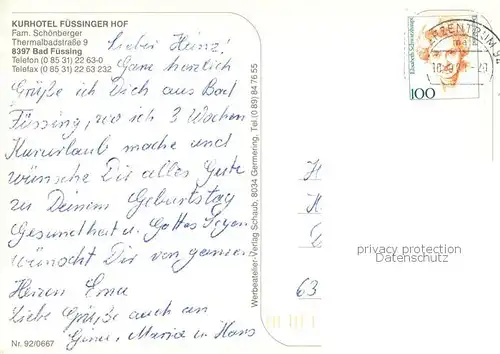 KURHOTEL FÜSSINGER HOF
Fam. Schönberger
Thermalbadstraße 9
8397 Bad Füssing
Telefon (0 85 31) 22 63-0
Telefax (0 85 31) 22 63 232
Lieber Heinz!
Ganz herzlich
Grüße ich Dich aus Bad
Füssing, wo ich 3 Wochen
Kururlaub mache und
wünsche Dir alles Gute
zu Deinem Geburtstag
Gesundheit u. Gottes Segen
wünscht Dir von ganzem
Herzen Erna
Liebe Grüße auch an
Maria u. Hans
Nr. 92/0667
Werbeatelier-Verlag Schaub, 8034 Germering, Tel. (0 89) 84 76 55
Elisabeth Schwarzhaupt
100
63
privacy protection
(DSGVO)